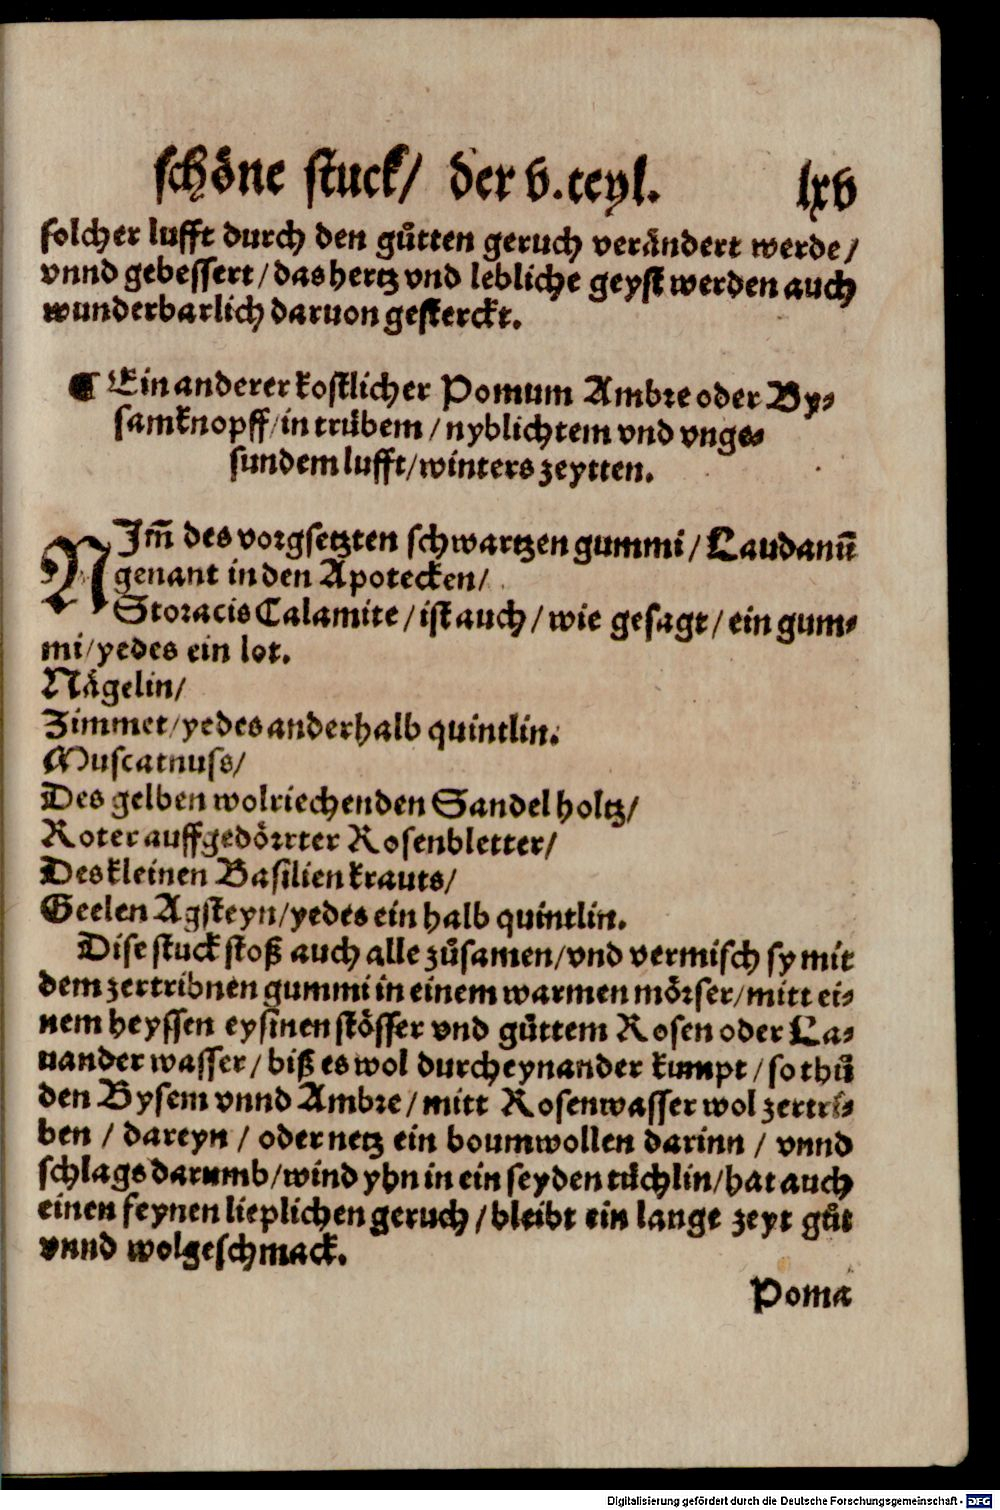 schöne stuck/ der v.teyl. lxv
solcher lufft durch den guͦtten geruch verändert werde/
vnnd gebessert/das hertz vnd lebliche geyst werden auch
wunderbarlich daruon gesterckt.
¶ Ein anderer kostlicher Pomum Ambre oder By⸗
samknopff/in truͤbem/nyblichtem vnd vnge⸗
sundem lufft/winters zeytten.
NIm̄ des vorgsetzten schwartzen gummi/Laudanū
genant in den Apotecken/
Storacis Calamite/ist auch/wie gesagt/ein gum⸗
mi/yedes ein lot.
Nägelin/
Zimmet/yedes anderhalb quintlin.
Muscatnuss/
Des gelben wolriechenden Sandel holtz/
Roter auffgedörrter Rosenbletter/
Des kleinen Basilien krauts/
Geelen Agsteyn/yedes ein halb quintlin.
Dise stuck stoß auch alle zuͦsamen/vnd vermisch sy mit
dem zertribnen gummi in einem warmen mörser/mitt ei⸗
nem heyssen eysinen stösser vnd guͦttem Rosen oder La⸗
uander wasser/biß es wol durcheynander kumpt/so thuͦ
den Bysem vnnd Ambre/mitt Rosenwasser wol zertri⸗
ben/dareyn/oder netz ein boumwollen darinn/vnnd
schlags darumb/wind yhn in ein seyden tuͤchlin/hat auch
einen feynen lieplichen geruch/bleibt ein lange zeyt guͦt
vnnd wolgeschmack.
Poma
Digitalisierung gefördert durch die Deutsche Forschungsgemeinschaft - DFG